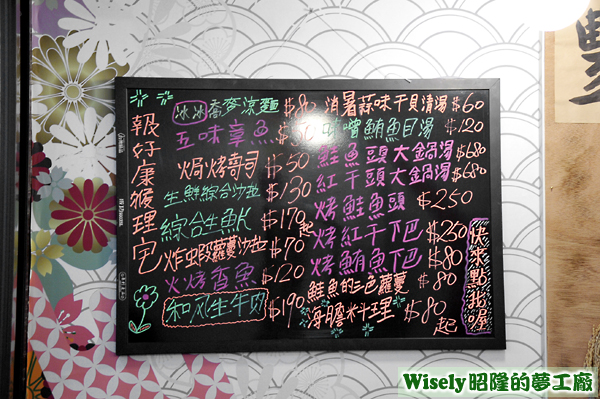 報好康優理它
冰冰蕎麥涼麵$80
五味章魚$80
焗烤壽司$50
生鮮綜合沙拉$130
綜合生魚片$170起
炸蝦蘿蔓沙拉$70
火烤香魚$120
和风生牛肉$190
消暑蒜味干貝清湯$60
味噌鮪魚目湯$120
鮭魚頭大鍋湯$680
紅干頭大鍋湯$680
烤鮭魚頭$250
烤紅干下巴$250
烤鮪魚下巴$80
鮭魚的三色蘿蔓$80
海膽料理$80起
快來點我喔
Wisely昭隆的夢工廠